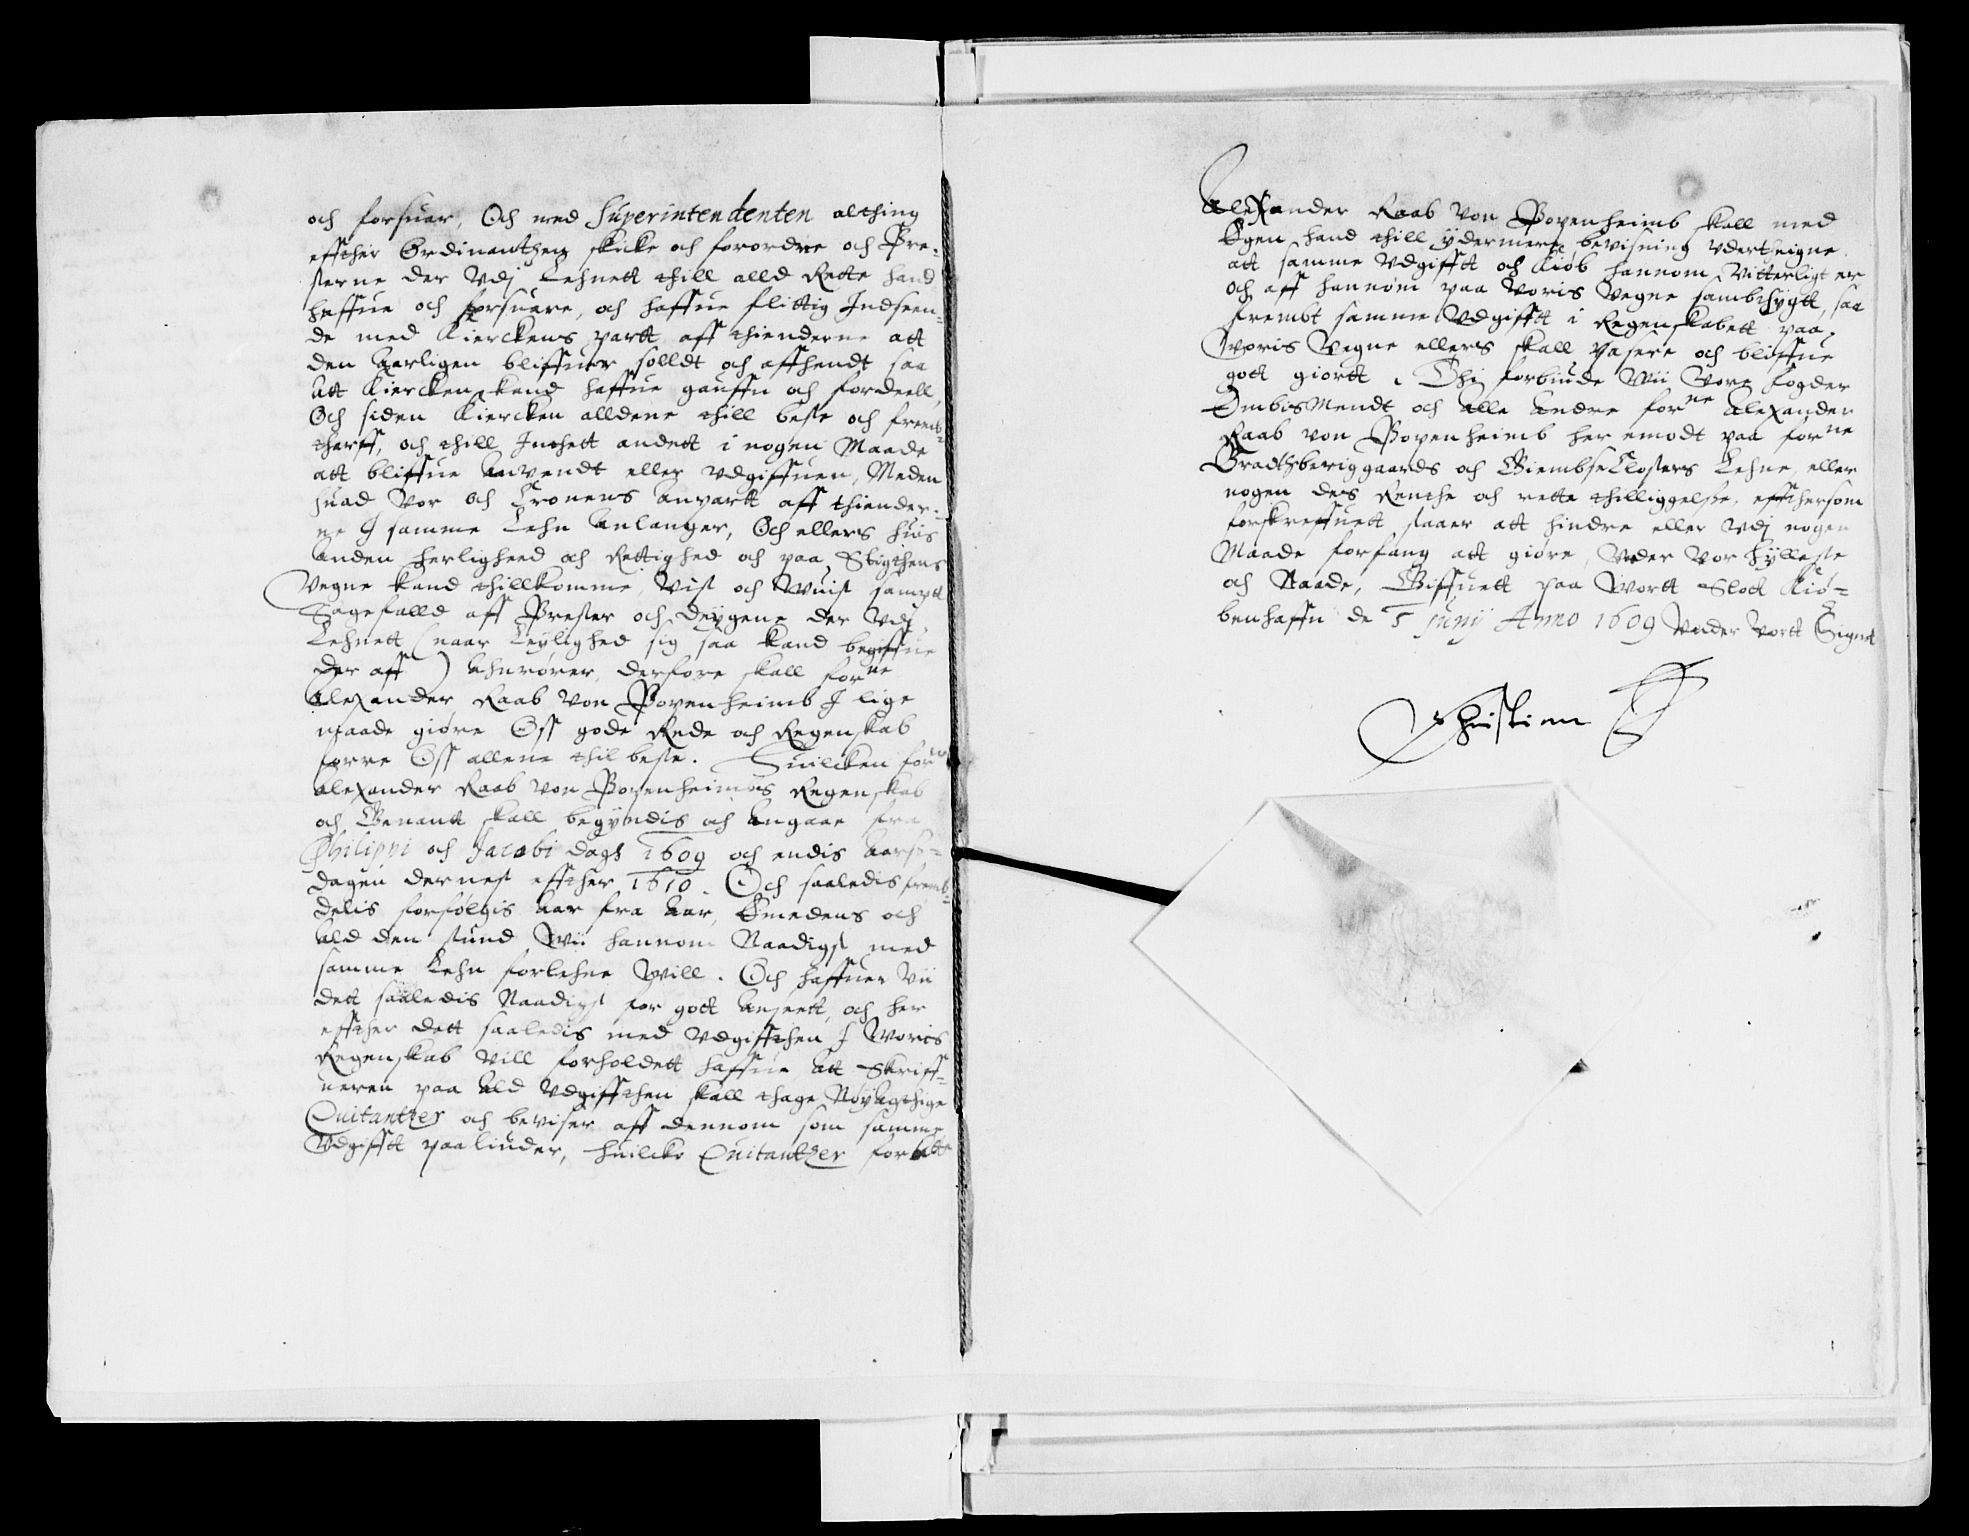 och forsuar, Och med Superintendenten althing
effther Ordinantzen skicke och forordne och Pre-
sterne der Vdj Lehnett thill alld Rette hand
haffue och forsuare, och haffue flittig Indseen-
de med Kierckens partt aff thienderne att
den Aarligen bliffuer solldt och affhendt saa
Att Kiercken kand haffue gauffn och fordeell,
Och siden Kiercken alldene thill beste och fremb-
therff, och thill Inthett andett i nogen Maade
att bliffue Anvendt eller vdgiffuen, Meden
huad Vor och Cronens Anpartt aff thiender-
ne J samme Lehn Anlanger, Och ellers huis
Anden herligheed och Rettighed och paa Stigthens
Vegne kand thillkomme, Vist och Wuist sampt
Sagefalld aff Prester och deygene der Vdj
Lehnett (naar Leylighed sig saa kand begiffue
der aff) Ahnrører, derfore skall forne
Alexander Raab von Papenheimb J lige
maade giøre Oss gode Rede och Regenskab
forre Oss allene thil beste. Huilcken forne
Alexander Raab von Papenheimbs Regenskab
och Genant skall begyndis och Angaae fra
Philippi och Jacobi dags 1609 och endis Aars-
dagen dernest effther 1610. Och saaledis fremb-
delis forfølgis Aar fra Aar, Emedens och
Ald den stund Wii hannom Naadigst med
samme Lehn forlehne Will. Och haffuer Vii
dett saaledis Naadigst for gott Anseett, och her
effther dett saaledis med Vdgiffthen J Woris
Regenskab Vill forholdett haffue Att Skriff-
ueren paa Ald Vdgiffthen skall thage Nøyagthige
Quitantzer och beviser aff dennom som samme
Vdgifftt paaliuder, huilcke Quitantzer forne
Alexander Raab Von Papenheimb skall med
Egen hand thill ydermere bevisning vdertheigne
att samme Vdgifftt och Kiøb hannom Vitterligt er
och aff hannom paa Voris Vegne sambthygtt, saa
frembt samme Vdgifftt i Regenskabett paa
Woris Vegne ellers skall pasere och bliffue
gott giortt. Thj forbiude Wii Vore fogder
Embitsmendt och Alle Andre forne Alexander
Raab von Papenheimb her emodt paa forne
Bradtzberiggaards och Giembsø Closters Lehne, eller
nogen dets Renthe och rette thilliggelse, effthersom
forskreffuett staaer att hindre eller Vdj nogen
Maade forfang att giøre, Vnder Vor hylleste
och Naade, Giffuett paa Wortt Slott Kiø-
benhaffn de 5 Junij Anno 1609 Vnder Vortt Signet
Christian